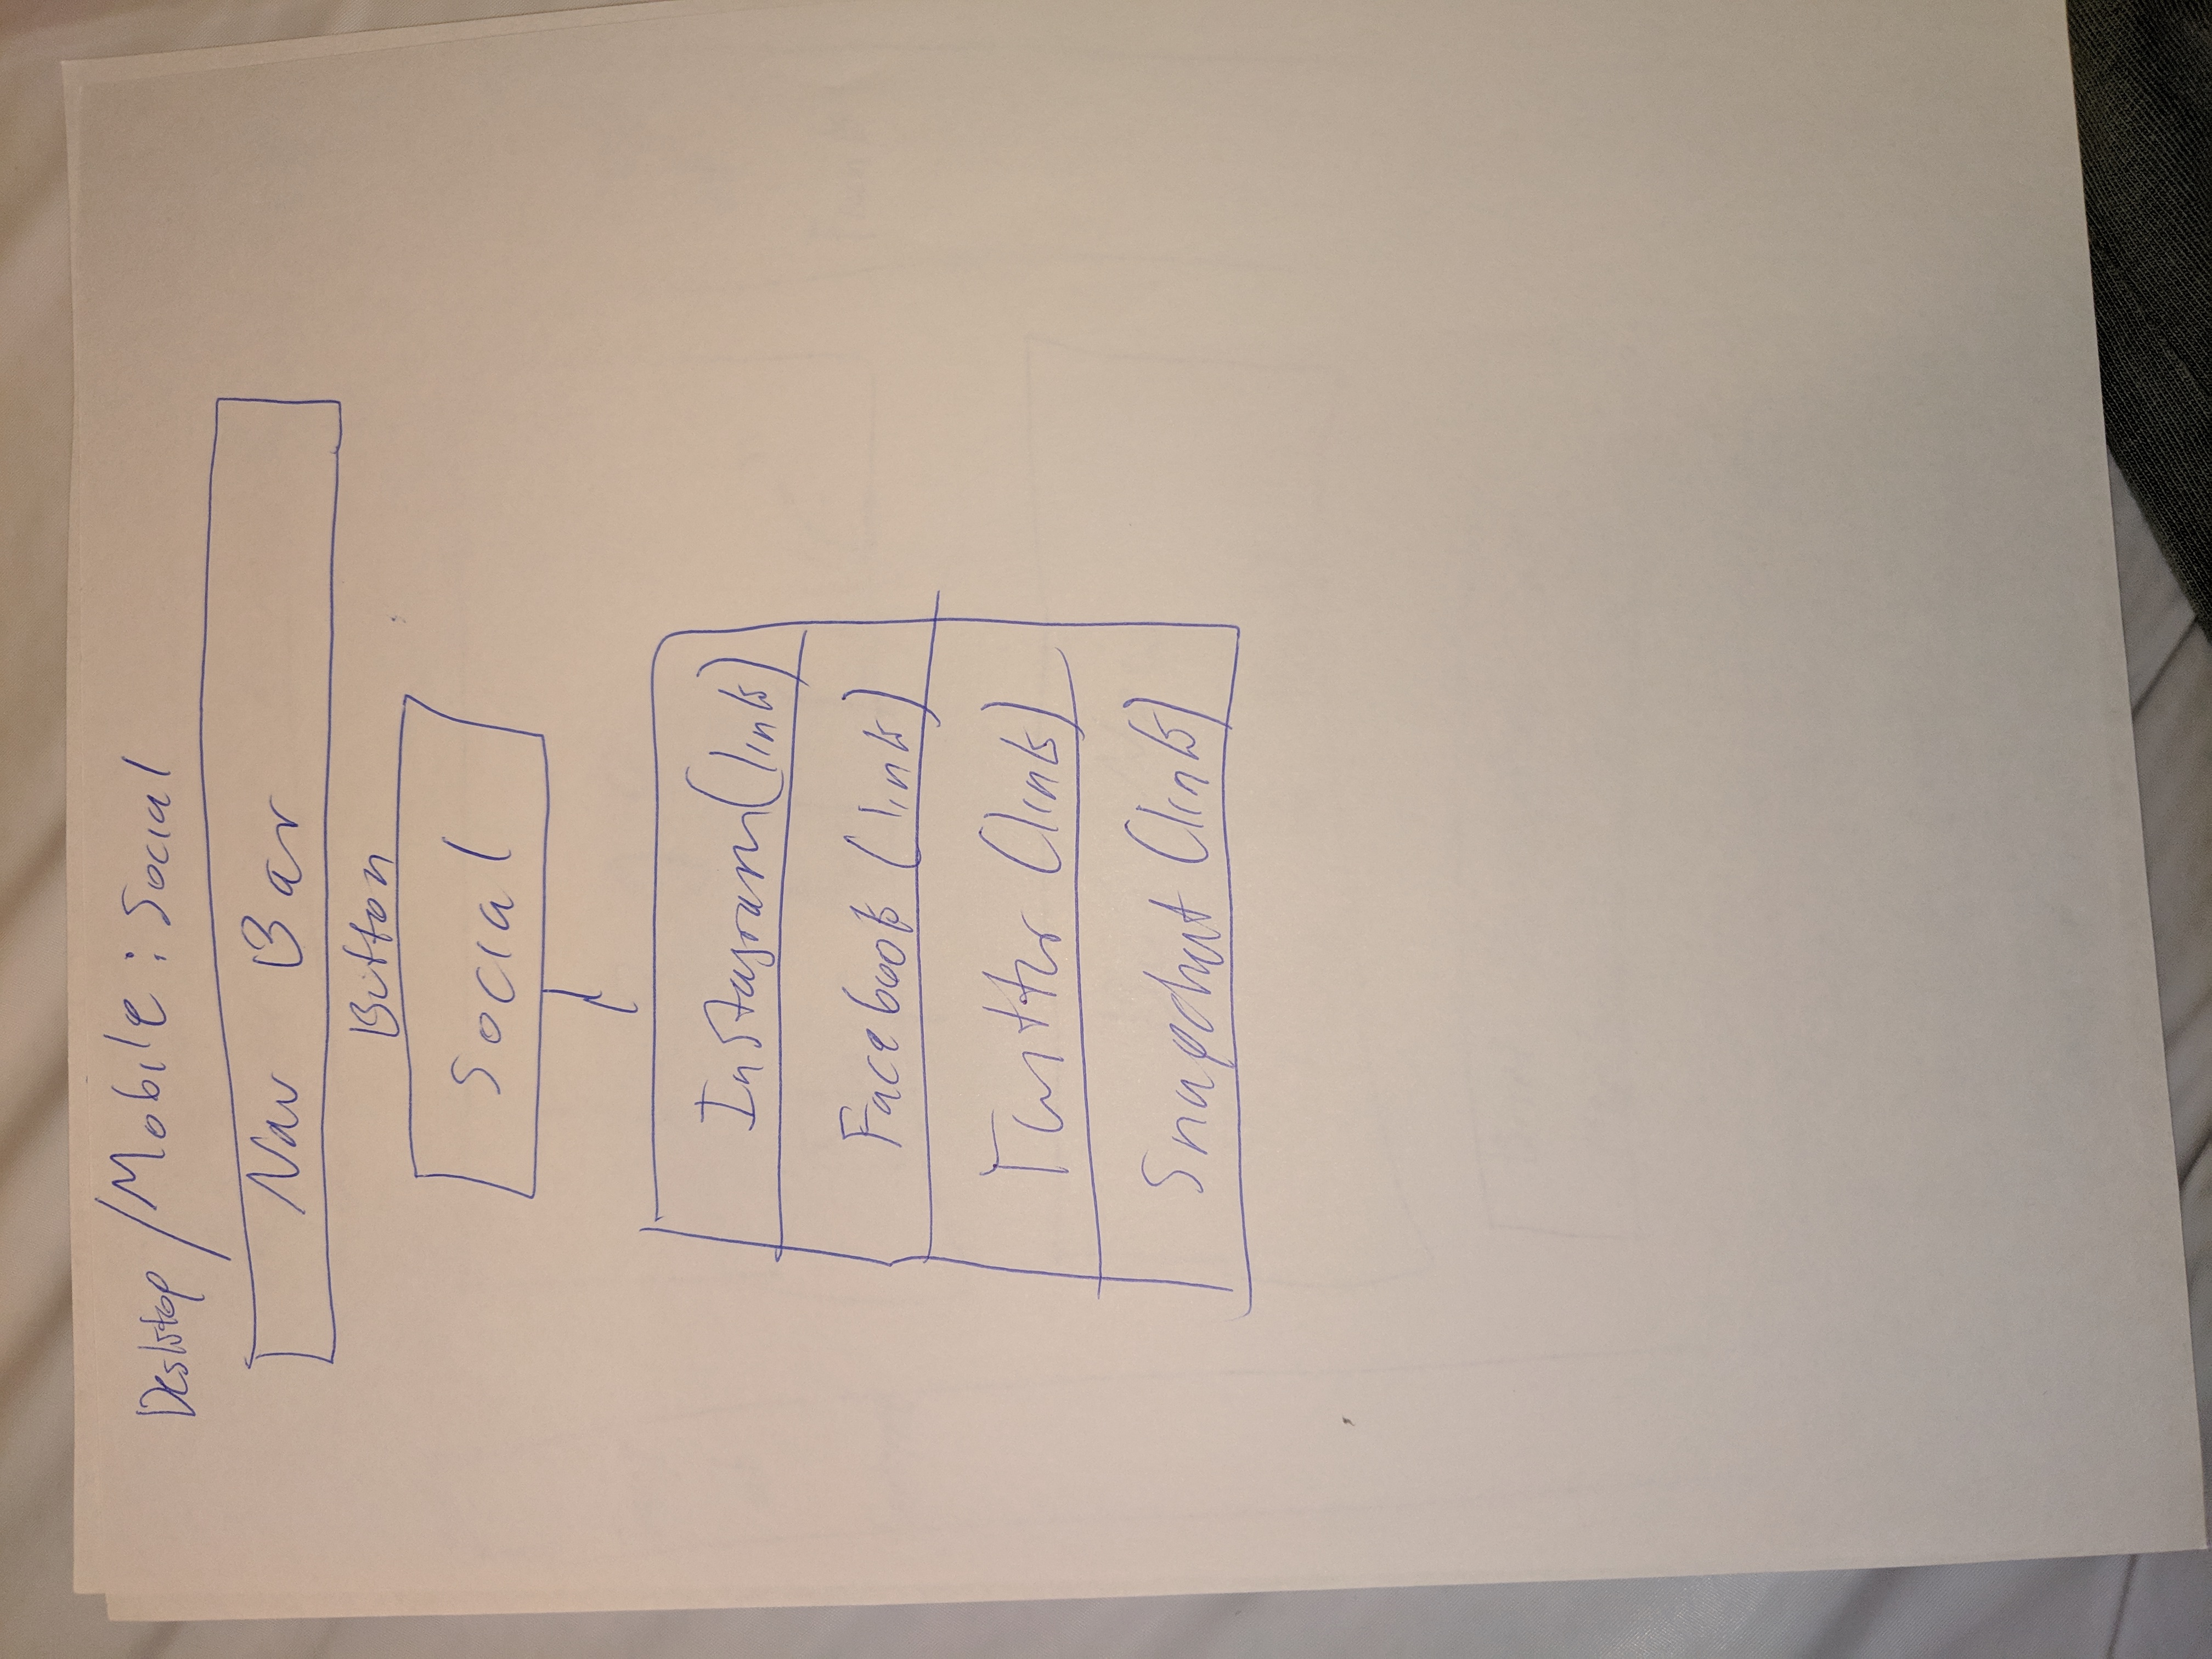 Desktop / Mobile : Social
Nav Bar
Button
Social
Instagram (link)
Facebook (link)
Twitter (link)
Snapchat (link)